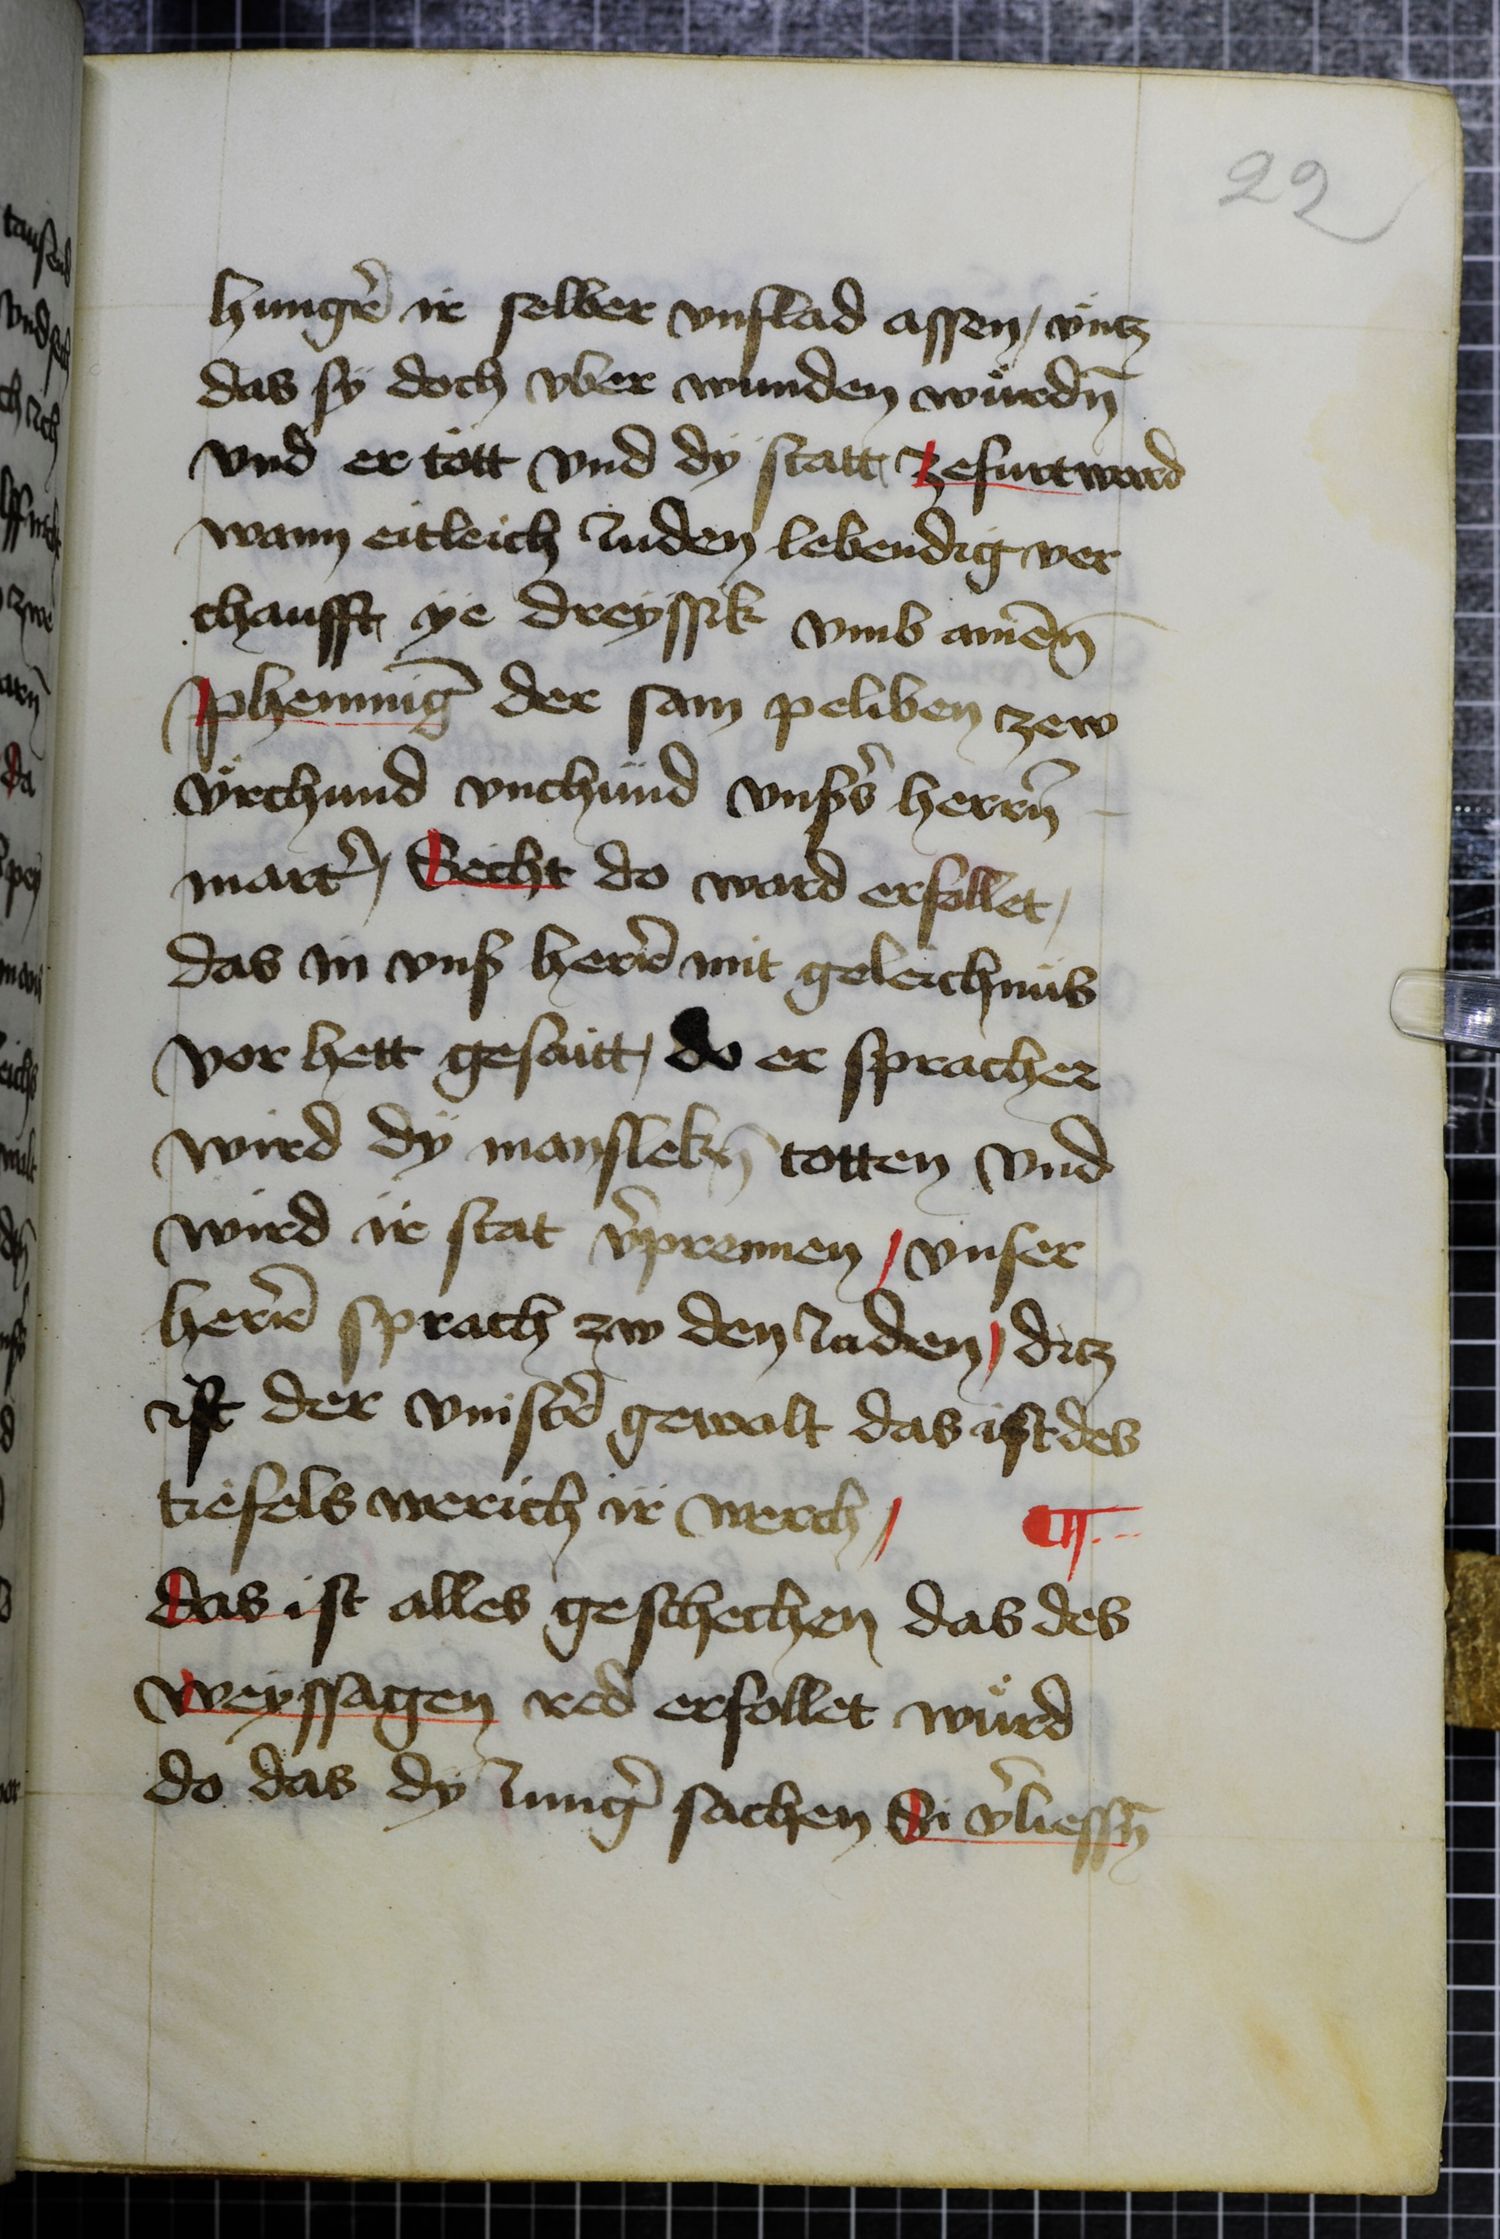 22
hungr̄ ir selber vnflad assen / vntz
das sÿ doch vber wunden würdn̄
vnd er tött vnd dÿ statt zefurt ward
wann eitleich Juden lebendig ver
chaufft ÿe dreyssik vmb ainēn
phenninḡ der sam peliben zew
vrchund vnchünd vnsers̄ herrn̄
martr̄ / Secht do ward erfollet /
das in vnſ herr̄ mit geleichnüs
vor hett gesaitt / do er sprach er
wird dÿ manslekn̄ totten vnd
wird ir stat v̄prennen / vnser
herr̄ sprach zw den Juden / ditz
ist der vinstr̄ gewalt das ist des
tiefels werich ir werch /
das ist alles geschechen das des
weyssagen red erfollet würd
do das dÿ Jungr̄ sachen Si v̄liessn̄